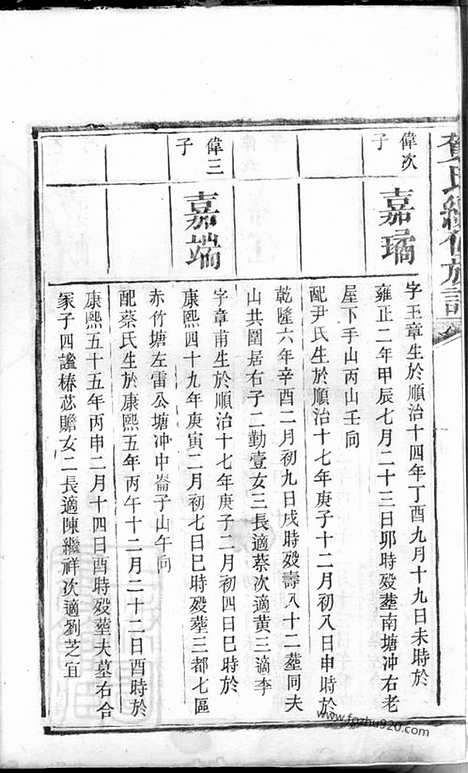 氏續修族譜
偉次子
嘉璚
字王章生於順治十四年丁酉九月十九日未時於
雍正二年甲辰七月二十三日卯時歿塟南塘冲右老
屋下手山丙山壬向
配尹氏生於順治十七年庚子十二月初八日申時於
乾隆六年辛酉二月初九日戌時歿壽八十二塟同夫
山共圍居右子二勤壹女三長適蔡次適黄三適李
偉三子
嘉端
字章甫生於順治十七年庚子二月初四日巳時於
康熙四十九年庚寅二月初七日巳時歿塟三都七區
赤竹塘左雷公塘冲中崙子山午向
配蔡氏生於康熙五年丙午十二月二十二日酉時於
康熙五十五年丙申二月十四日酉時歿塟夫墓右合
冡子四謐椿苾贍女二長適陳繼祥次適劉芝宜
www.fgzhu920.com